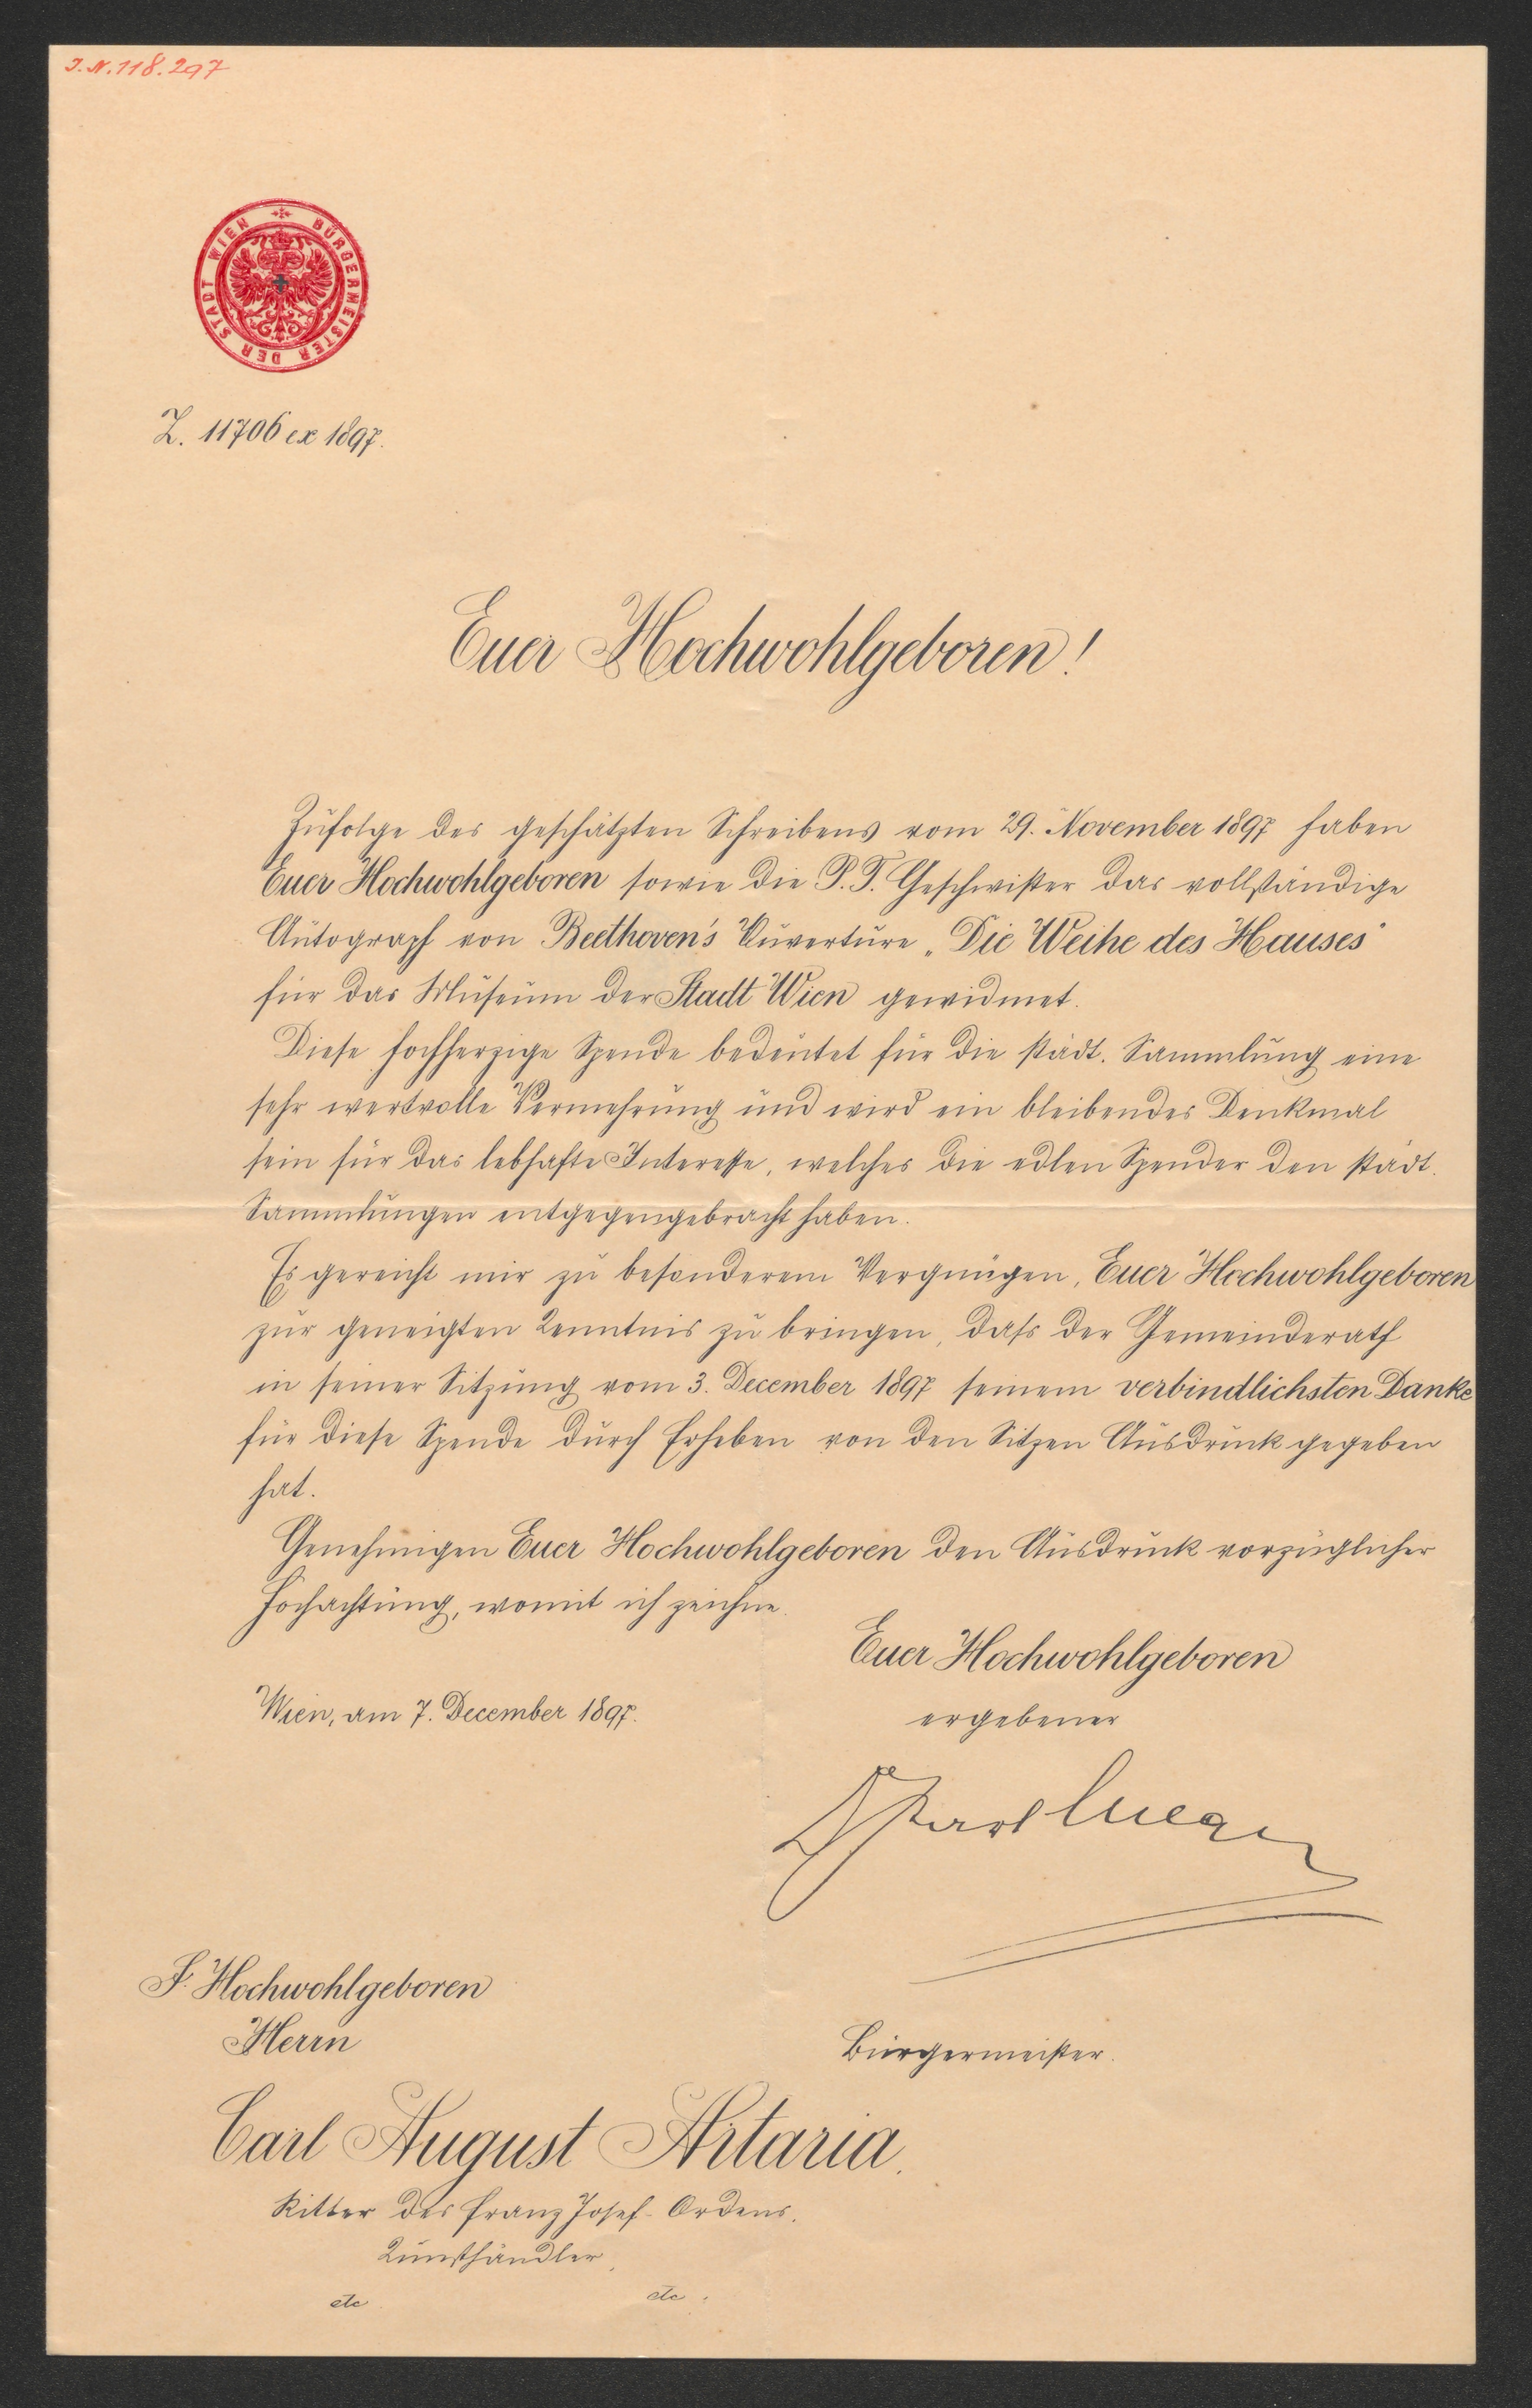 J.N. 118.297
BÜRGERMEISTER DER STADT WIEN
Z. 11706 ex 1897.
Euer Hochwohlgeboren!
Zufolge des geschätzten Schreibens vom 29. November 1897 haben
Euer Hochwohlgeboren sowie die P. T. Geschwister das vollständige
Autograph von Beethoven's Ouverture „Die Weihe des Hauses"
für das Museum der Stadt Wien gewidmet.
Diese hochherzige Spende bedeutet für die städt. Sammlung eine
sehr wertvolle Vermehrung und wird ein bleibendes Denkmal
sein für das lebhafte Interesse, welches die edlen Spender den städt.
Sammlungen entgegengebracht haben.
Es gereicht mir zu besonderem Vergnügen, Euer Hochwohlgeboren
zur geneigten Kenntnis zu bringen, dass der Gemeinderath
in seiner Sitzung vom 3. December 1897 seinem verbindlichsten Danke
für diese Spende durch Erheben von den Sitzen Ausdruck gegeben
hat.
Genehmigen Euer Hochwohlgeboren den Ausdruck vorzüglicher
Hochachtung, womit ich zeichne.
Euer Hochwohlgeboren
Wien, am 7. December 1897.
ergebener
Dr Karl Lueger
S. Hochwohlgeboren
Herrn
Bürgermeister.
Carl August Artaria.
Ritter des Franz Josef-Ordens,
Kunsthändler,
etc. etc.